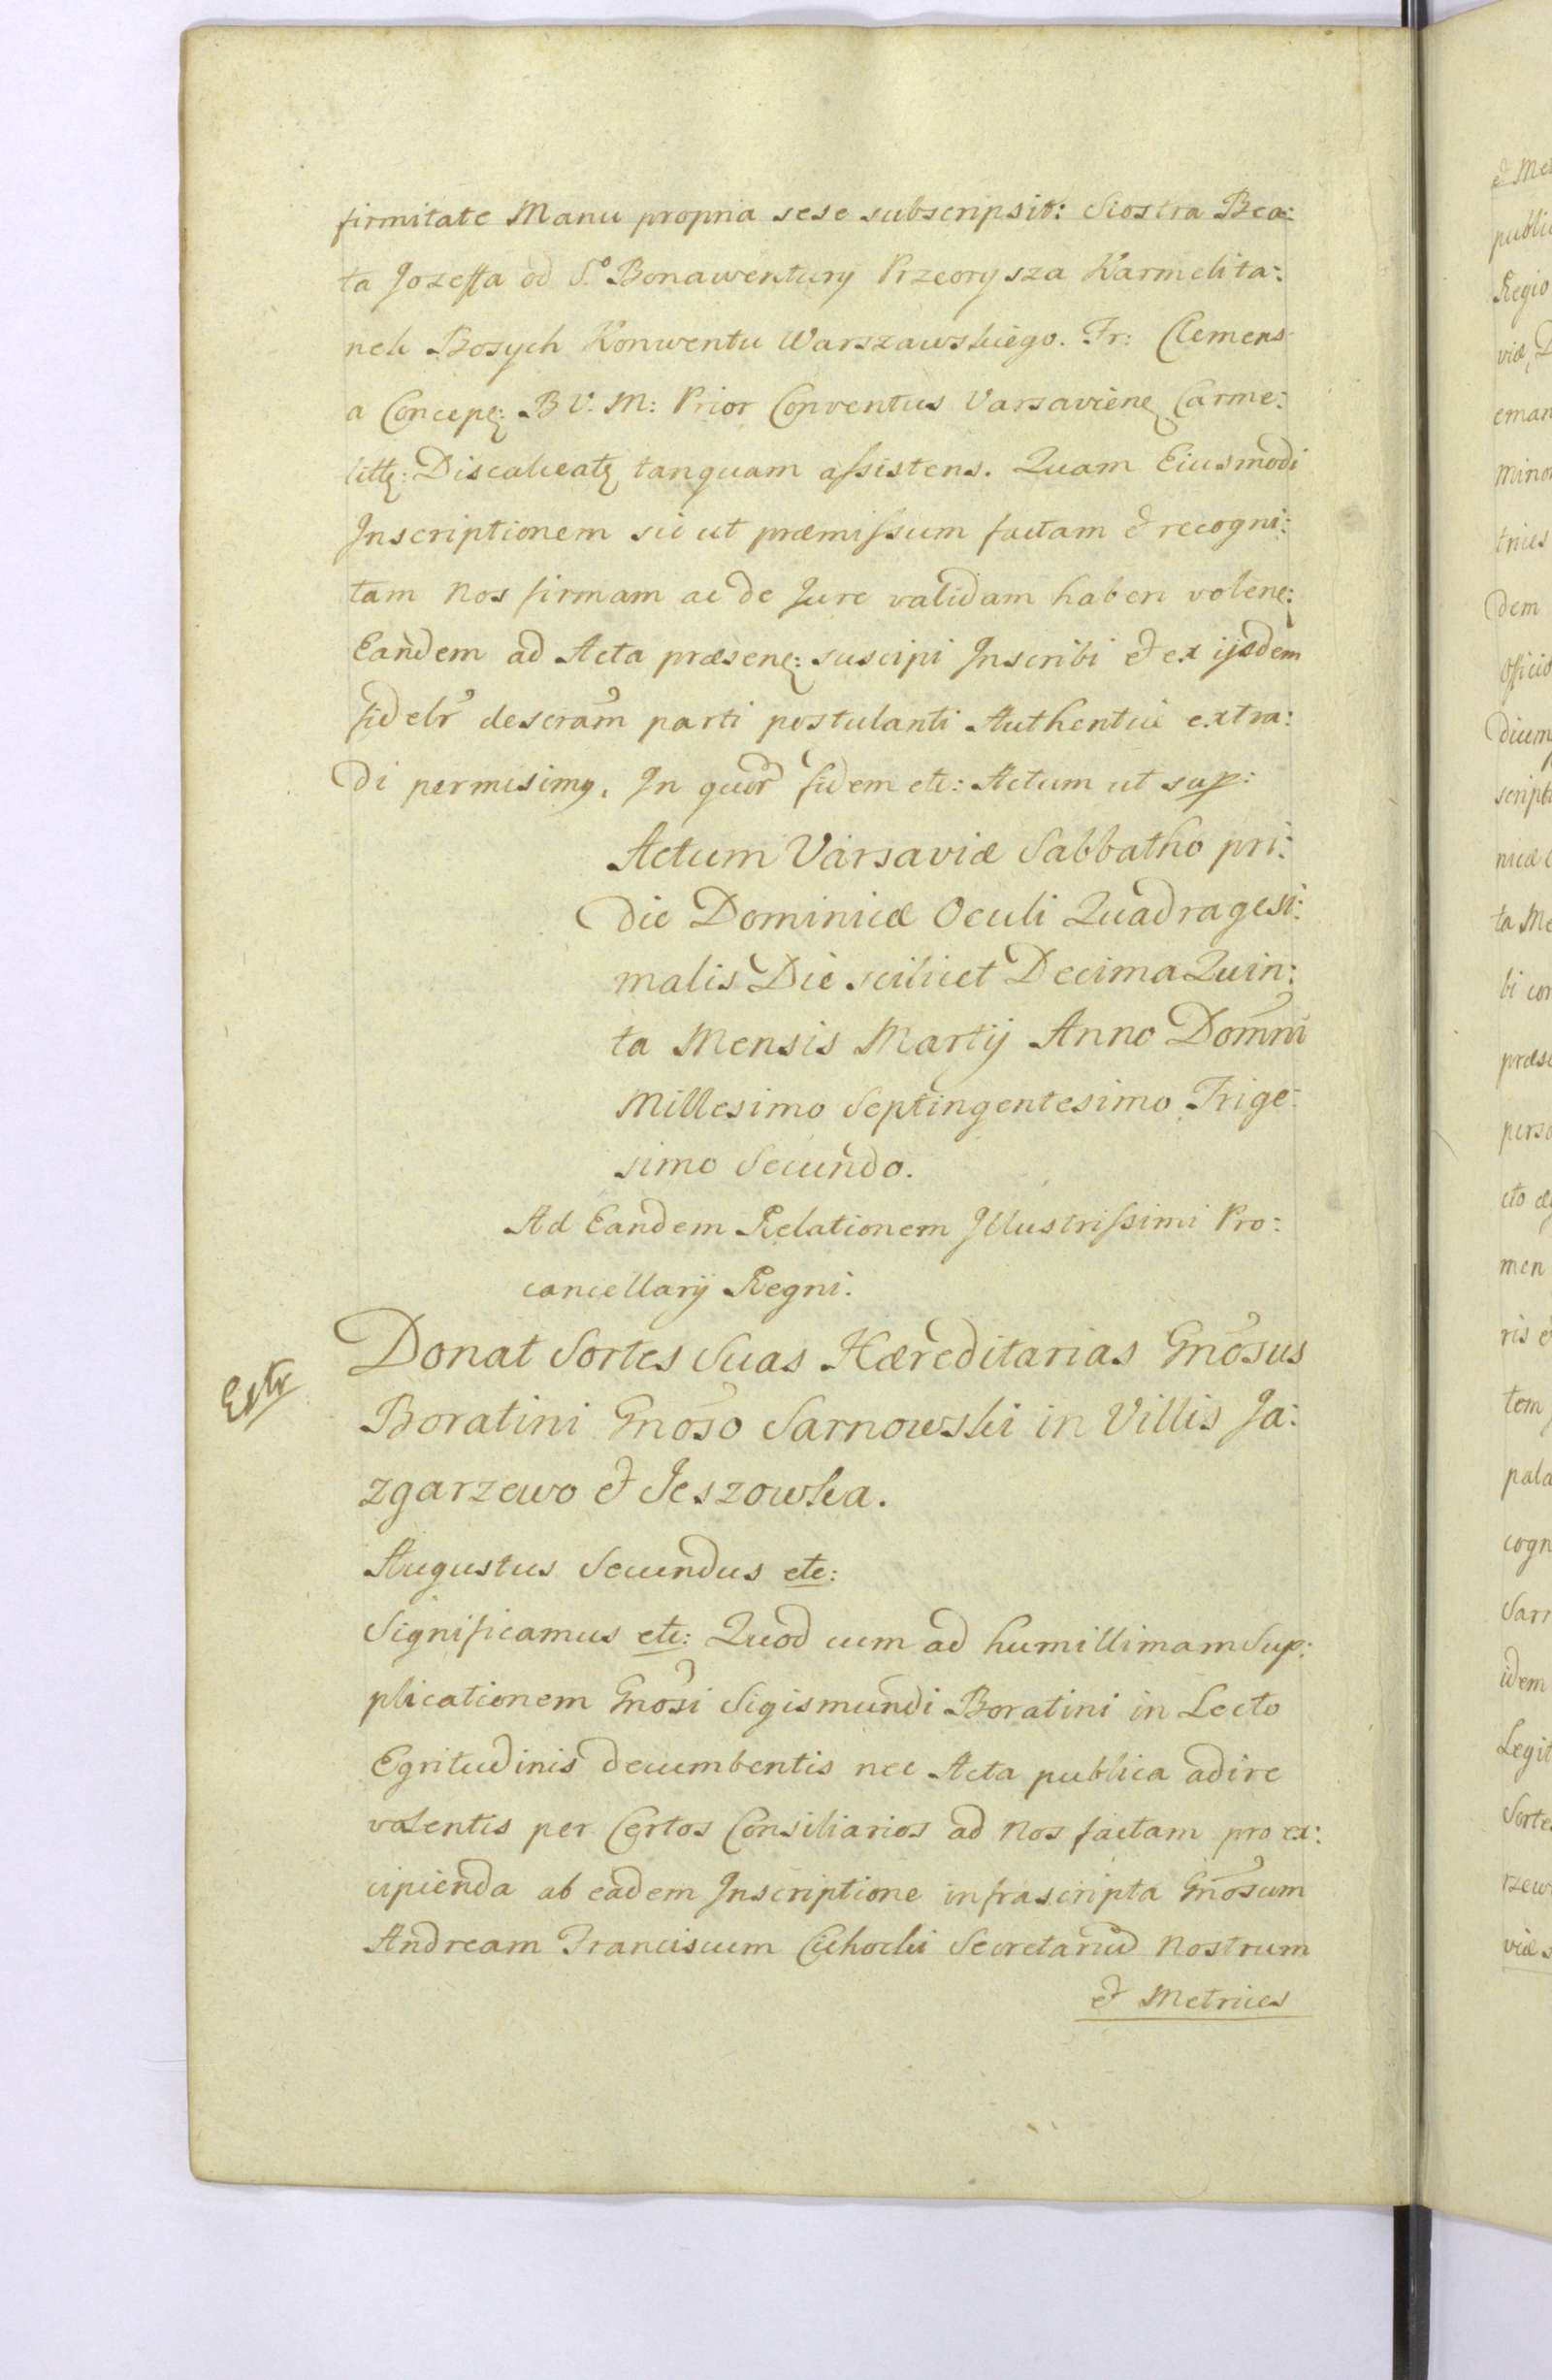 firmitate Manu propria sese subscripsit: Siostra Bea:
ta Jozeffa od S.º Bonawentury Przeorysza Karmelita:
nek Bosych Konwentu Warszawskiego. Fr: Clemens
a Concepę: B V. M: Prior Conventus Varsavienę Carme:
littę: Discalceatę tanquam assistens. Quam Eiusmodi
Inscriptionem sic ut præmissum factam & recogni:
tam Nos firmam ac de Jure validam haberi volenę:
Eandem ad Acta præsenę: suscipi Inscribi & ex ijsdem
fidelr̃ descram̃ parti postulanti Authentice extra:
di permisimꝰ. In quor̃ fidem etc: Actum ut sup:
Actum Varsaviæ Sabbatho pri:
die Dominicæ Oculi Quadragesi:
malis Die scilicet Decima Quin:
ta Mensis Martij Anno Domñi
Millesimo Septingentesimo Trige:
simo Secundo.
Ad Eandem Relationem Illustrissimi Pro:
cancellarij Regni.
Extr
Donat Sortes Suas Hæreditarias Gnõsus
Boratini Gnõso Sarnowski in Villis Ja:
zgarzewo & Jeszowka.
Augustus Secundus etc:
Significamus etc: Quod cum ad humillimam Sup:
plicationem Gnõsi Sigismundi Boratini in Lecto
Egritudinis decumbentis nec Acta publica adire
valentis per Certos Consiliarios ad Nos factam pro ex:
cipienda ab eadem Inscriptione infrascripta Gnõsum
Andream Franciscum Cichocki Secretariũ Nostrum
& Metrices